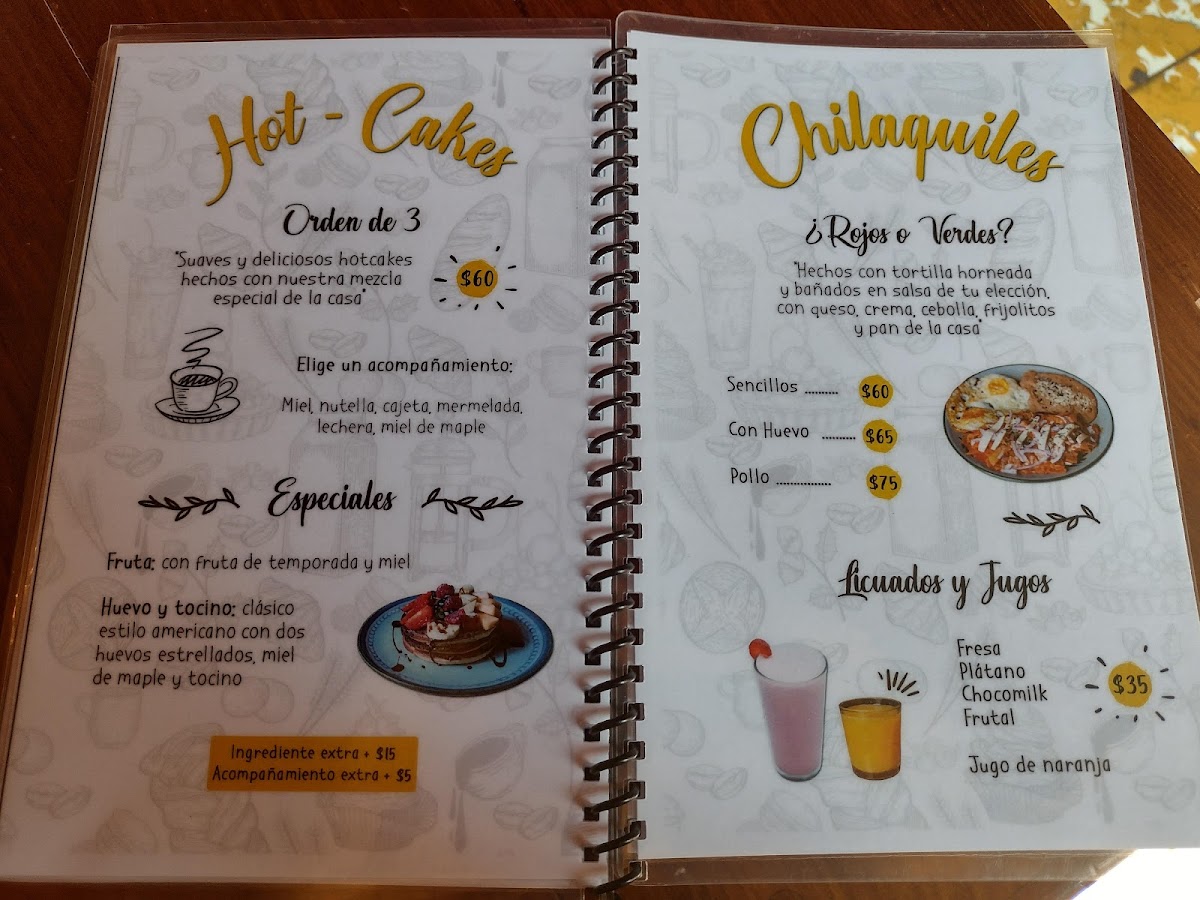 Hot - Cakes
Orden de 3
"Suaves y deliciosos hotcakes
hechos con nuestra mezcla
especial de la casa"
$60
Elige un acompañamiento:
Miel, nutella, cajeta, mermelada,
lechera, miel de maple
Especiales
Fruta: con fruta de temporada y miel
Huevo y tocino: clásico
estilo americano con dos
huevos estrellados, miel
de maple y tocino
Ingrediente extra + $15
Acompañamiento extra + $5
Chilaquiles
¿Rojos o Verdes?
"Hechos con tortilla horneada
y bañados en salsa de tu elección,
con queso, crema, cebolla, frijolitos
y pan de la casa"
Sencillos .......... $60
Con Huevo .......... $65
Pollo ................ $75
Licuados y Jugos
Fresa
Plátano
Chocomilk
Frutal
$35
Jugo de naranja